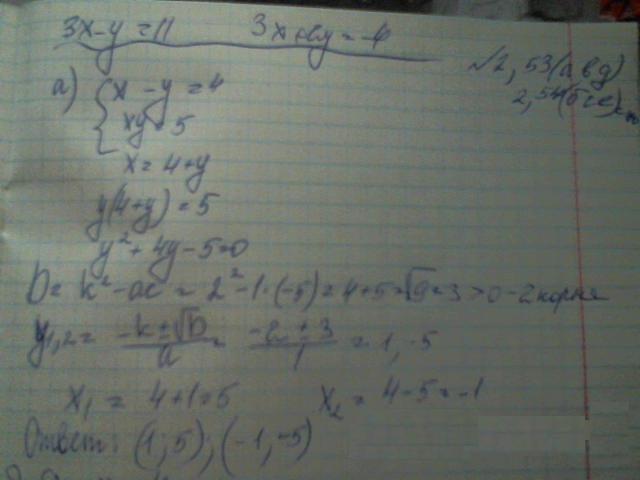 3x-y=11 3x+2y=-4
№2,53(а в д)
2,54(б г е)
а) { x - y = 4
xy = 5
x = 4+y
y(4+y) = 5
y² + 4y - 5 = 0
D = k² - ac = 2² - 1·(-5) = 4+5 = √9 = 3 > 0 - 2 корня
y1,2 = (-k ± √D)/a = (-2 ± 3)/1 = 1, -5
x1 = 4+1=5 x2 = 4-5=-1
Ответ: (1;5);(-1,-5)